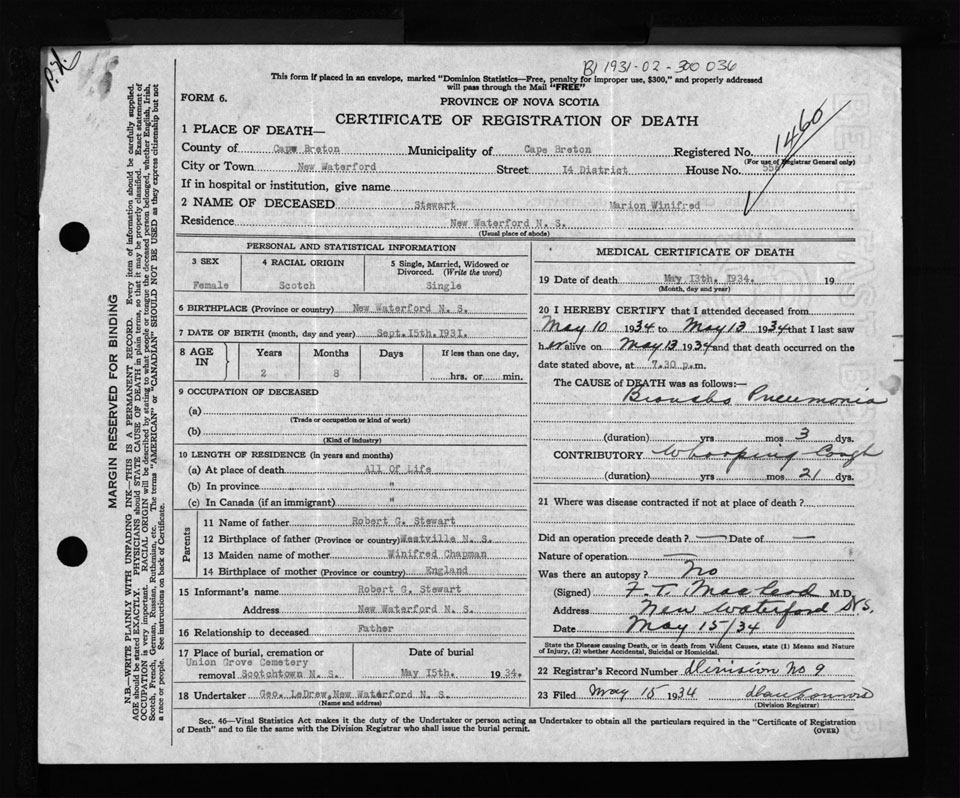 P.X.
B1 1931-02-300 036
This form if placed in an envelope, marked "Dominion Statistics—Free, penalty for improper use, $300," and properly addressed
will pass through the Mail "FREE"
FORM 6.
PROVINCE OF NOVA SCOTIA
CERTIFICATE OF REGISTRATION OF DEATH
1460
1 PLACE OF DEATH—
County of Cape Breton Municipality of Cape Breton Registered No.
(For use of Registrar General only)
City or Town New Waterford Street 14 District House No. 556
If in hospital or institution, give name
2 NAME OF DECEASED Stewart Marion Winifred
Residence New Waterford N. S.
(Usual place of abode)
PERSONAL AND STATISTICAL INFORMATION
3 SEX 4 RACIAL ORIGIN 5 Single, Married, Widowed or Divorced. (Write the word)
Female Scotch Single
6 BIRTHPLACE (Province or country) New Waterford N. S.
7 DATE OF BIRTH (month, day and year) Sept. 15th. 1931.
8 AGE IN Years Months Days If less than one day,
2 8 hrs. or min.
9 OCCUPATION OF DECEASED
(a)
(Trade or occupation or kind of work)
(b)
(Kind of industry)
10 LENGTH OF RESIDENCE (in years and months)
(a) At place of death All Of Life
(b) In province "
(c) In Canada (if an immigrant) "
Parents
11 Name of father Robert G. Stewart
12 Birthplace of father (Province or country) Westville N. S.
13 Maiden name of mother Winifred Chapman
14 Birthplace of mother (Province or country) England
15 Informant's name Robert G. Stewart
Address New Waterford N. S.
16 Relationship to deceased Father
17 Place of burial, cremation or Date of burial
Union Grove Cemetery
removal Scotchtown N. S. May 15th. 1934.
18 Undertaker Geo. LeDrew, New Waterford N. S.
(Name and address)
MEDICAL CERTIFICATE OF DEATH
19 Date of death May 13th. 1934. 19
(Month, day and year)
20 I HEREBY CERTIFY that I attended deceased from
May 10 1934 to May 13 1934 that I last saw
her alive on May 13 1934 and that death occurred on the
date stated above, at 7.30 p.m.
The CAUSE of DEATH was as follows:—
Broncho Pneumonia
(duration) yrs mos 3 dys.
CONTRIBUTORY Whooping Cough
(duration) yrs mos 21 dys.
21 Where was disease contracted if not at place of death?
Did an operation precede death? — Date of —
Nature of operation —
Was there an autopsy? No
(Signed) F. T. MacLeod M.D.
Address New Waterford N.S.
Date May 15/34
State the Disease causing Death, or in death from Violent Causes, state (1) Means and Nature
of Injury, (2) whether Accidental, Suicidal or Homicidal.
22 Registrar's Record Number Division No 9
23 Filed May 15 1934
(Division Registrar)
Sec. 46—Vital Statistics Act makes it the duty of the Undertaker or person acting as Undertaker to obtain all the particulars required in the "Certificate of Registration
of Death" and to file the same with the Division Registrar who shall issue the burial permit.
(OVER)
MARGIN RESERVED FOR BINDING
N.B.—WRITE PLAINLY WITH UNFADING INK—THIS IS A PERMANENT RECORD. Every item of information should be carefully supplied.
AGE should be stated EXACTLY. PHYSICIANS should STATE CAUSE OF DEATH in plain terms, so that it may be properly classified. Exact statement of
OCCUPATION is very important. RACIAL ORIGIN will be described by stating to what people or tongue the deceased person belonged, whether English, Irish,
Scotch, French, German, Russian, Ruthenian, etc. The terms "AMERICAN" or "CANADIAN" SHOULD NOT BE USED as they express citizenship but not
a race or people. See instructions on back of Certificate.